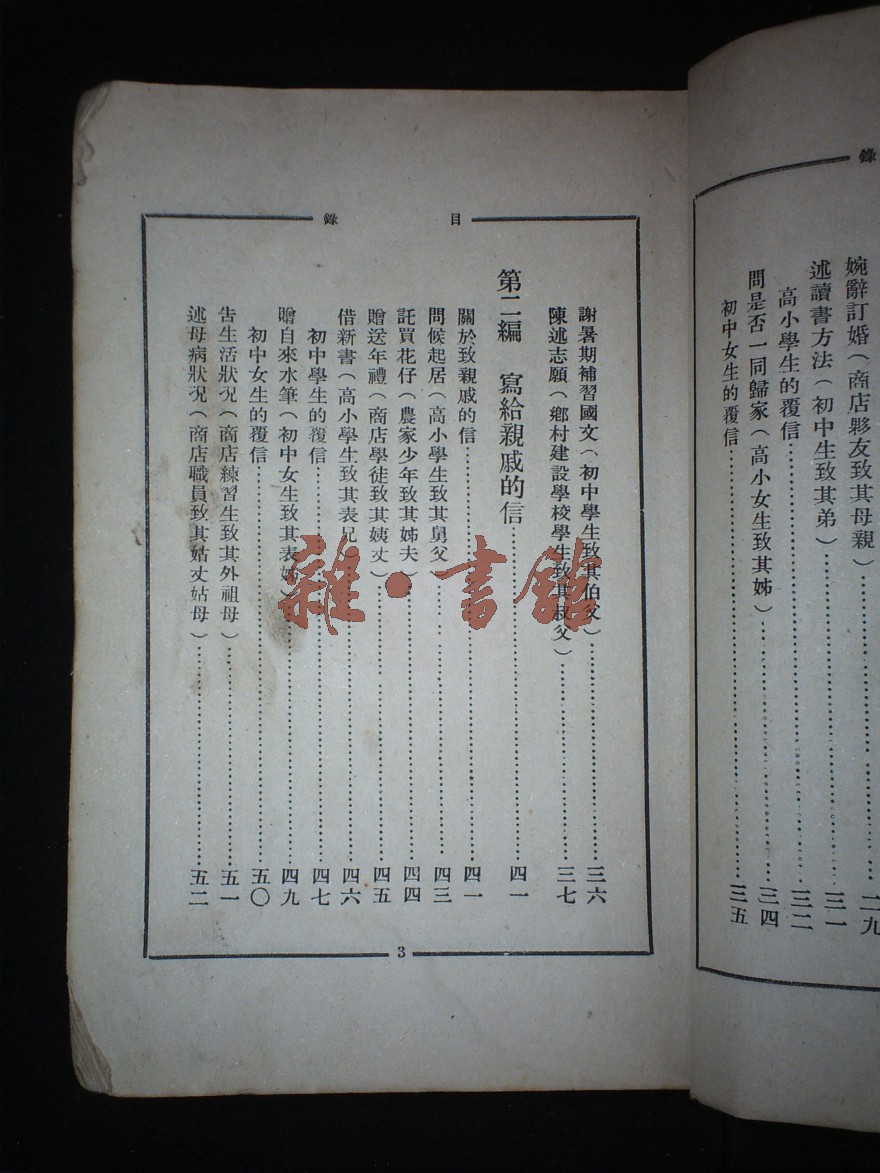 錄
婉辭訂婚（商店夥友致其母親）……二九
述讀書方法（初中生致其弟）……三一
高小學生的覆信……三二
問是否一同歸家（高小女生致其姊）……三四
初中女生的覆信……三五
目錄
謝暑期補習國文（初中學生致其伯父）……三六
陳述志願（鄉村建設學校學生致其叔父）……三七
第二編　寫給親戚的信……四一
關於致親戚的信……四一
問候起居（高小學生致其舅父）……四三
託買花仔（農家少年致其姊夫）……四四
贈送年禮（商店學徒致其姨丈）……四五
借新書（高小學生致其表兄）……四六
初中學生的覆信……四七
贈自來水筆（初中女生致其表姊）……四九
初中女生的覆信……五〇
告生活狀況（商店練習生致其外祖母）……五一
述母病狀況（商店職員致其姑丈姑母）……五二
3
雜·書館